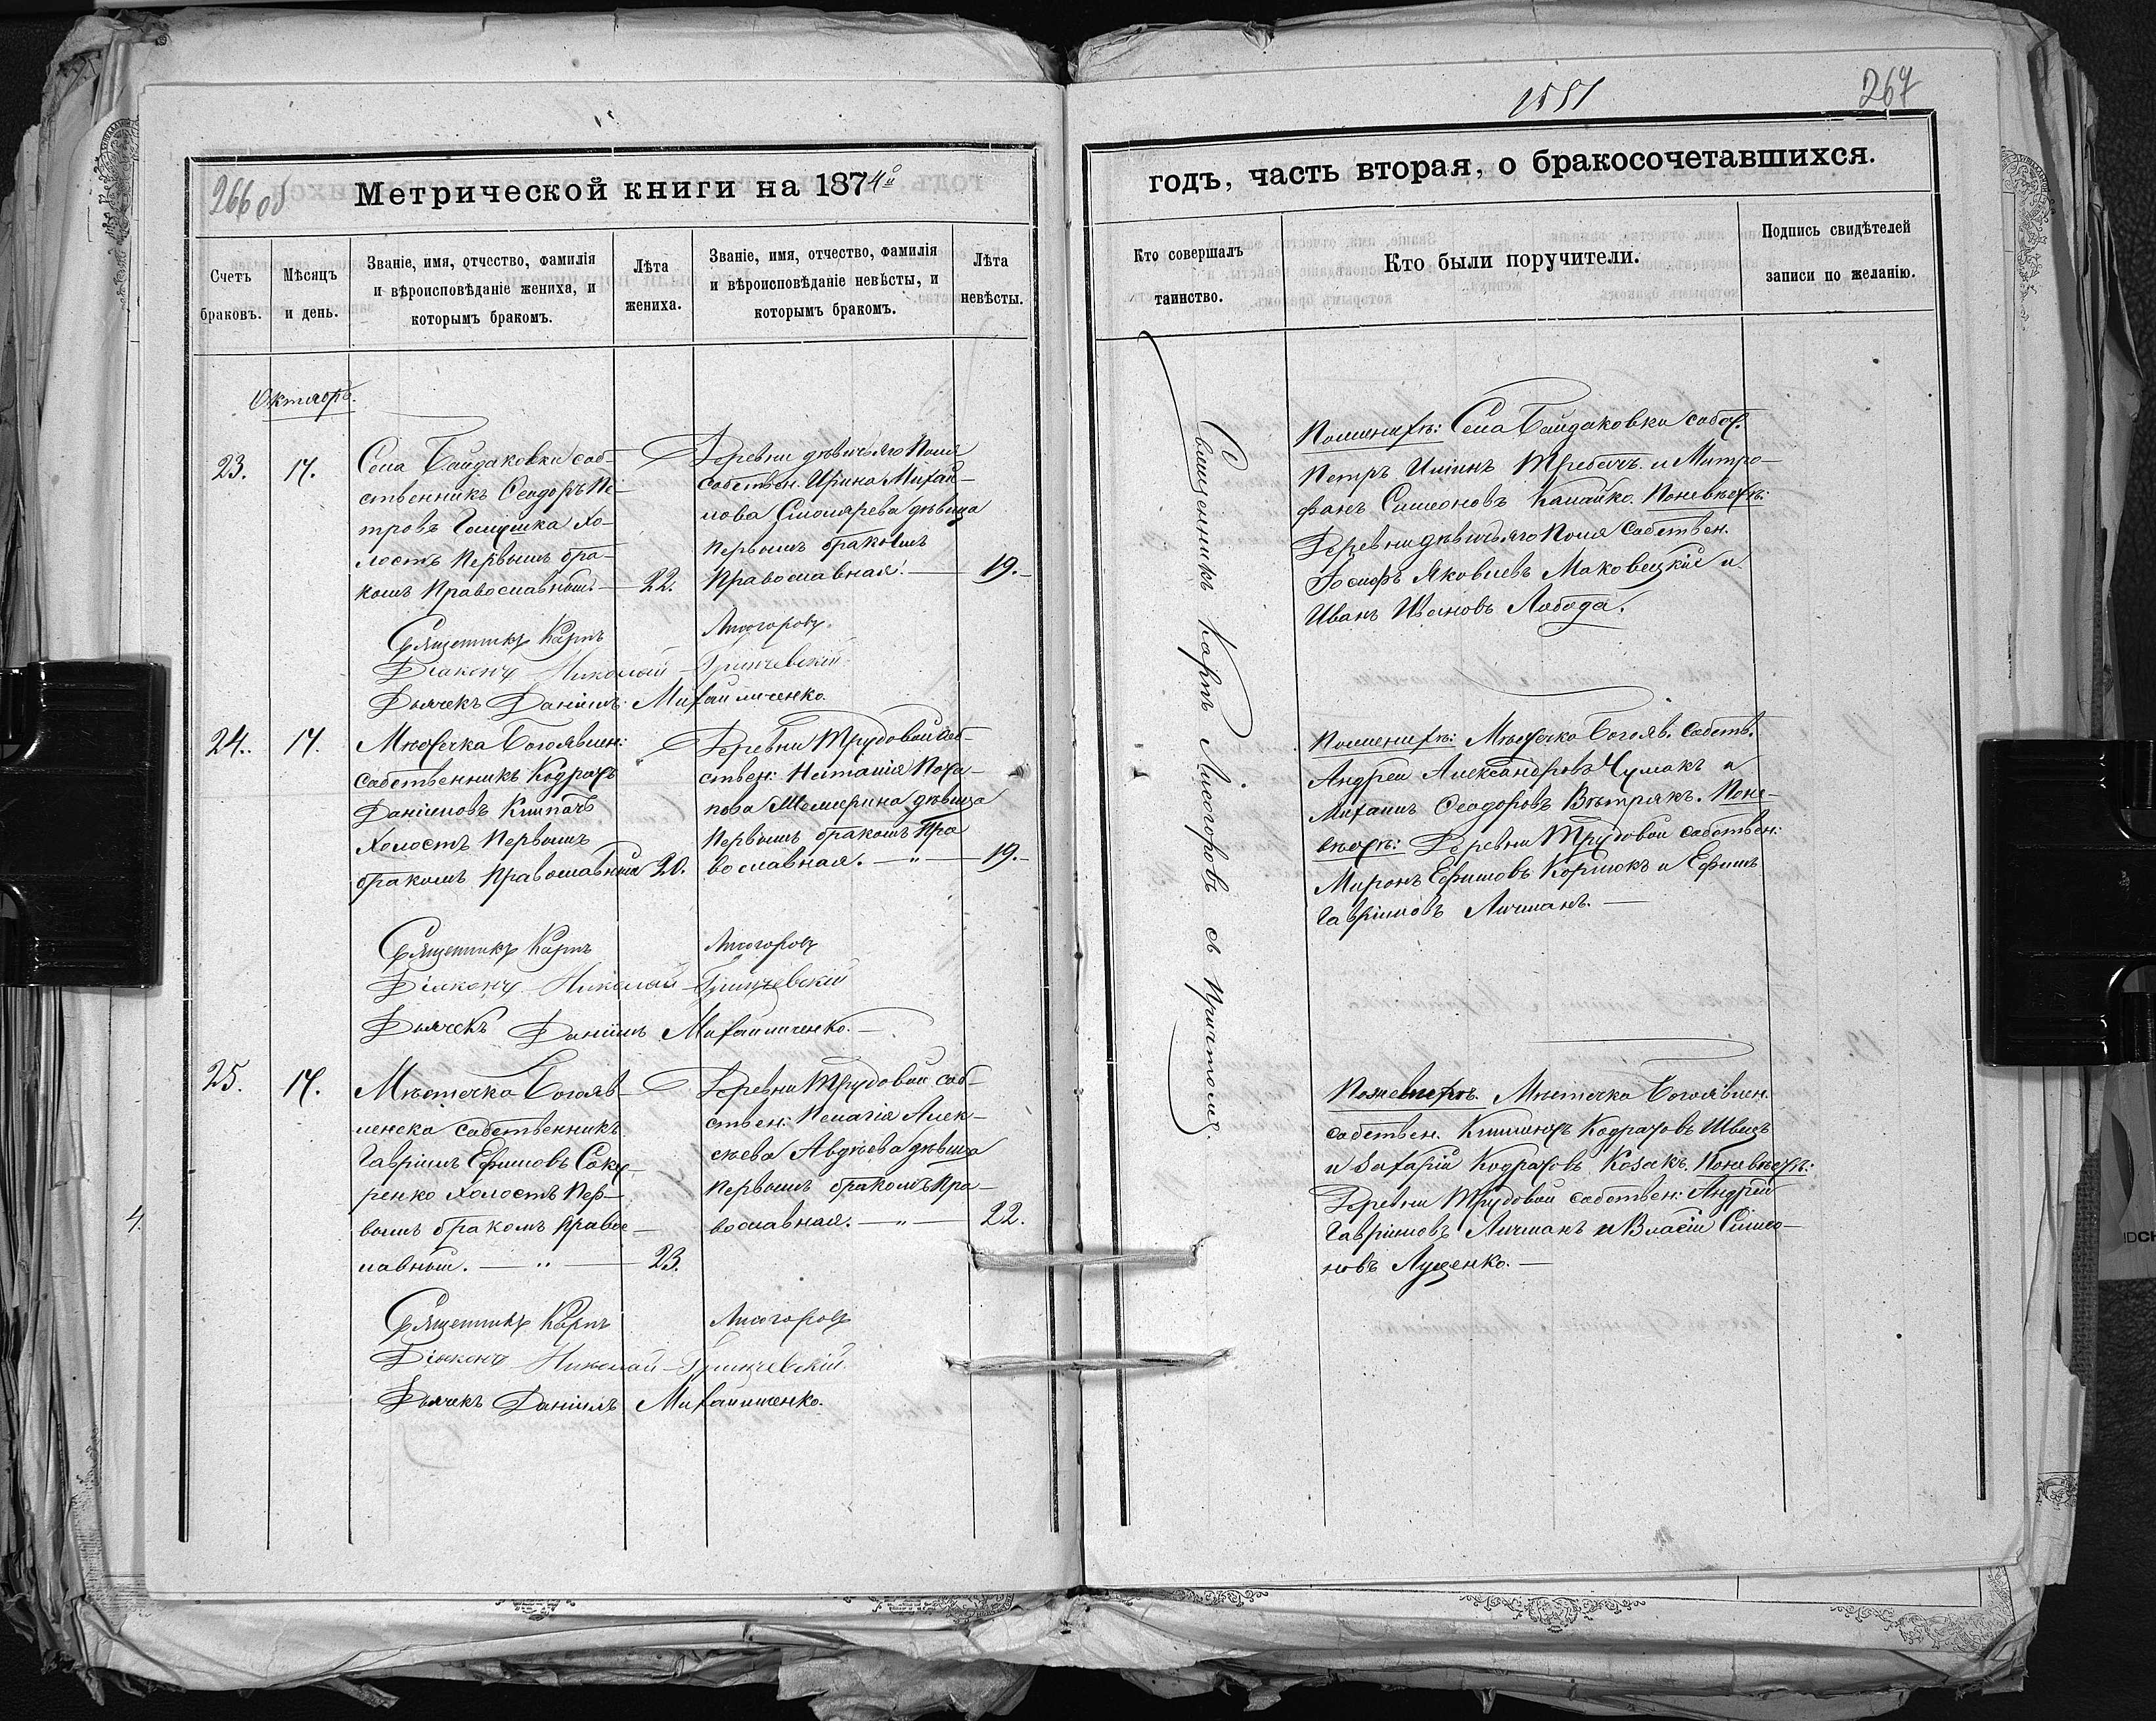 266 об
Метрической книги на 1874й
Счетъ браковъ.
Мѣсяцъ и день.
Званіе, имя, отчество, фамилія и вѣроисповѣданіе жениха, и которымъ бракомъ.
Лѣта жениха.
Званіе, имя, отчество, фамилія и вѣроисповѣданіе невѣсты, и которымъ бракомъ.
Лѣта невѣсты.
Октябрь.
23.
17.
Села Байдаковки соб-
ственникъ Ѳеодоръ Пе-
тровъ Галушка хо-
лостъ первымъ бра-
комъ Православный. — 22.
Деревни дѣвичьяго Поля
собствен. Ирина Михай-
лова Столярева дѣвица
первымъ бракомъ
Православная. — 19.
Священникъ Карпъ Лисогоровъ
Діаконъ Николай Гринчевскій
Дьячекъ Даніилъ Михайличенко.
24.
17.
Мѣстечка Богоявлен:
собственникъ Кодратъ
Даніиловъ
Холостъ первымъ
бракомъ православный 20.
Деревни Трудовой соб-
ствен: Наталія Пота-
пова дѣвица
первымъ бракомъ Пра-
вославная. — " — 19.
Священникъ Карпъ Лисогоровъ
Діаконъ Николай Гринчевскій
Дьячекъ Даніилъ Михайличенко. —
25.
17.
Мѣстечка Богояв-
ленска собственникъ
Гавріилъ Ефимовъ Саку-
ренко холостъ пер-
вымъ бракомъ правос-
лавный. — " — 23.
Деревни Трудовой соб-
ствен: Пелагія Алек-
сѣева Авдѣева дѣвица
первымъ бракомъ пра-
вославная. — " — 22.
Священникъ Карпъ Лисогоровъ
Діаконъ Николай Гринчевскій
Дьячекъ Даніилъ Михайличенко.
4.
267
годъ, часть вторая, о бракосочетавшихся.
Кто совершалъ таинство.
Кто были поручители.
Подпись свидѣтелей записи по желанію.
Священникъ Карпъ Лисогоровъ съ Причтомъ.
По женихѣ: Села Байдаковки собст.
Петръ Ильинъ Требачъ и Митро-
фанъ Самсоновъ По невѣстѣ:
Деревни дѣвичьяго Поля собствен.
Іосифъ Яковлевъ Маковецкій и
Иванъ Ивановъ Лобода.
По женихѣ: Мѣстечка Богояв. собств.
Андрей Александровъ Чумакъ и
Михаилъ Ѳеодоровъ Вѣтрякъ. По не-
вѣстѣ: Деревни Трудовой собствен:
Миронъ Ефимовъ и Ефимъ
Гавріиловъ Личманъ. —
По женихѣ Мѣстечка Богоявлен.
собствен. Климентъ Кодратовъ Швецъ
и Захарій Кодратовъ Козакъ. По невѣстѣ:
Деревни Трудовой собствен: Андрей
Гавріиловъ Личманъ и Власій Симео-
новъ Луценко. —